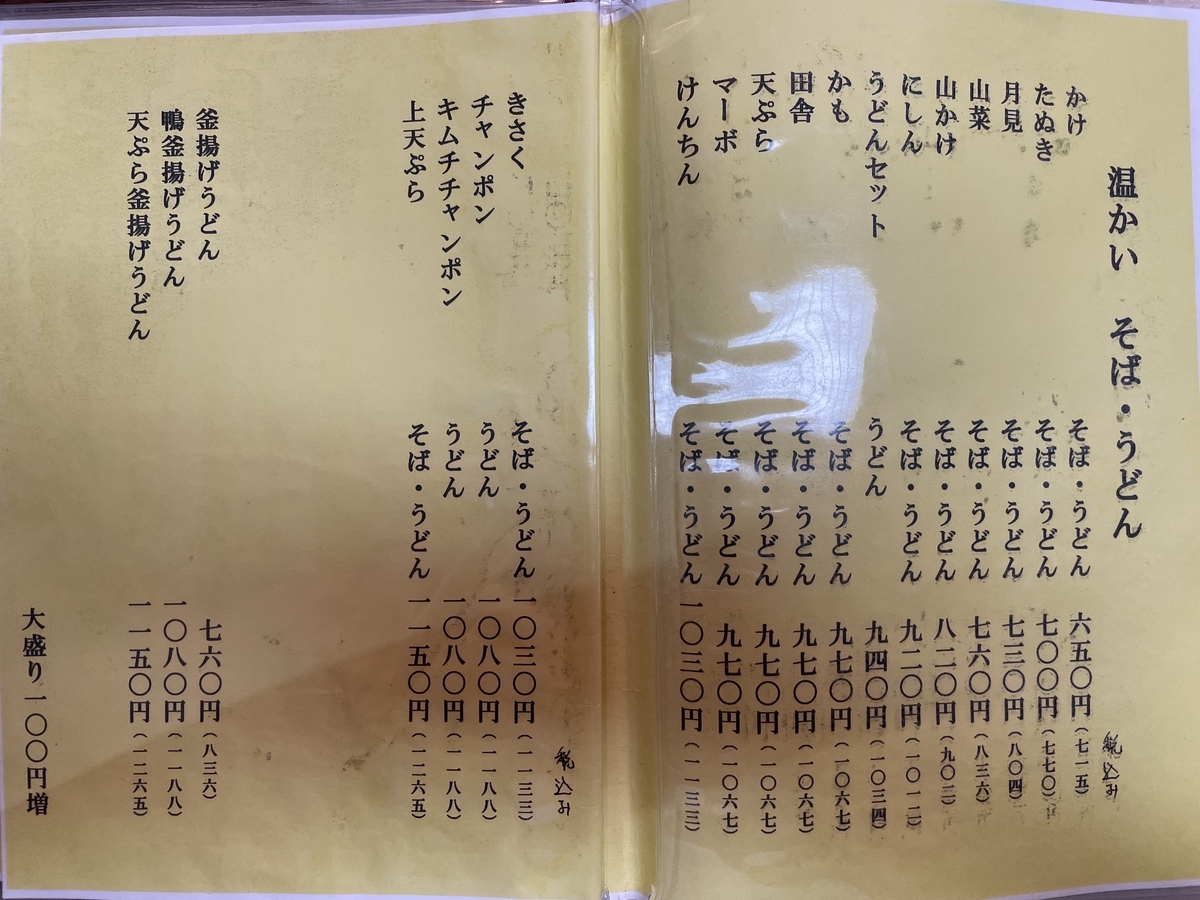 温かい そば・うどん
税込み
かけ そば・うどん 六五〇円(七一五)
たぬき そば・うどん 七〇〇円(七七〇)
月見 そば・うどん 七三〇円(八〇四)
山菜 そば・うどん 七六〇円(八三六)
山かけ そば・うどん 八二〇円(九〇二)
にしん そば・うどん 九二〇円(一〇一二)
うどんセット うどん 九四〇円(一〇三四)
かも そば・うどん 九七〇円(一〇六七)
田舎 そば・うどん 九七〇円(一〇六七)
天ぷら そば・うどん 九七〇円(一〇六七)
マーボ そば・うどん 九七〇円(一〇六七)
けんちん そば・うどん 一〇三〇円(一一三三)
税込み
きさく そば・うどん 一〇三〇円(一一三三)
チャンポン うどん 一〇八〇円(一一八八)
キムチチャンポン うどん 一〇八〇円(一一八八)
上天ぷら そば・うどん 一一五〇円(一二六五)
釜揚げうどん 七六〇円(八三六)
鴨釜揚げうどん 一〇八〇円(一一八八)
天ぷら釜揚げうどん 一一五〇円(一二六五)
大盛り一〇〇円増